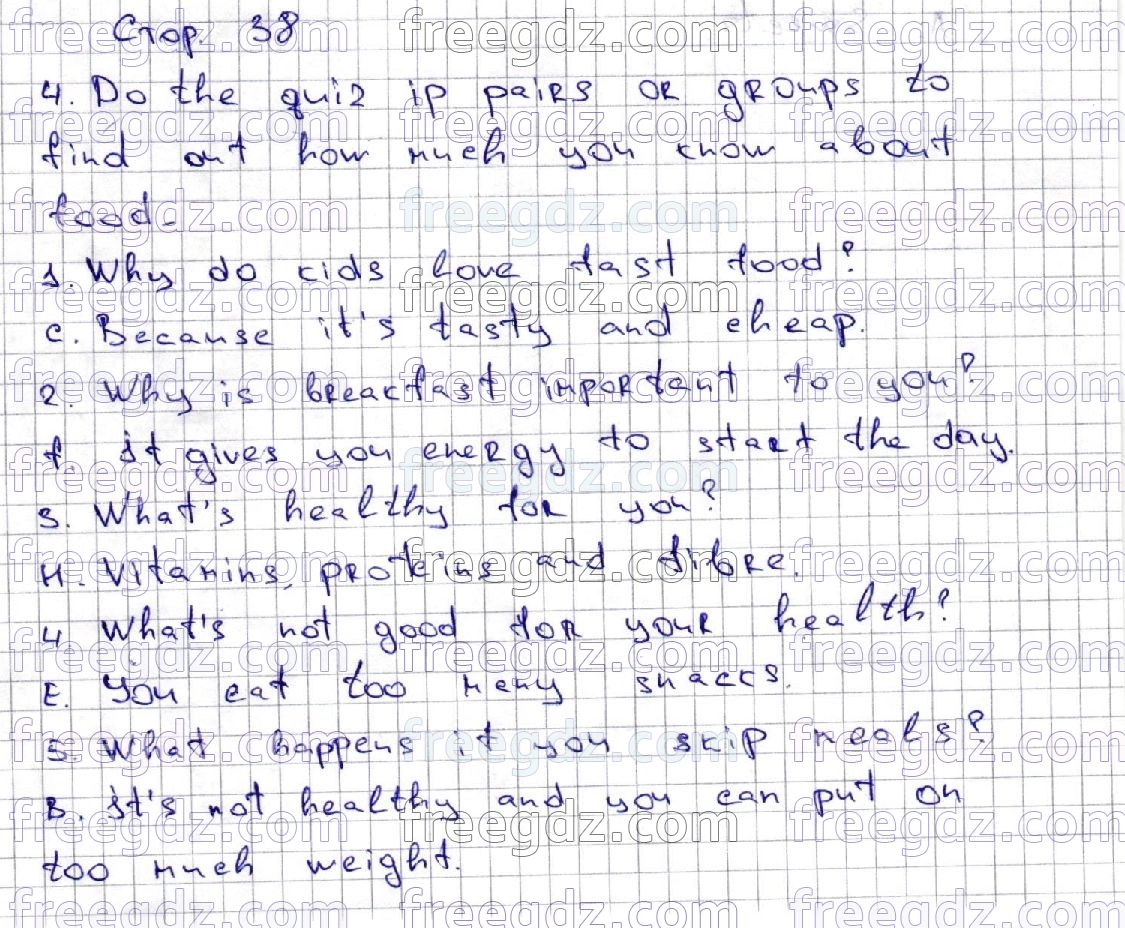 Стор. 38
4. Do the quiz ip pairs or groups to
find out how much you know about
food.
1. Why do kids love fast food?
C. Because it's tasty and cheap.
2. Why is breakfast important to you?
f. it gives you energy to start the day.
3. What's healthy for you?
H. Vitamins, proteins and fibre.
4. What's not good for your health?
E. You eat too many snacks.
5. What happens if you skip meals?
B. it's not healthy and you can put on
too much weight.
freegdz.com